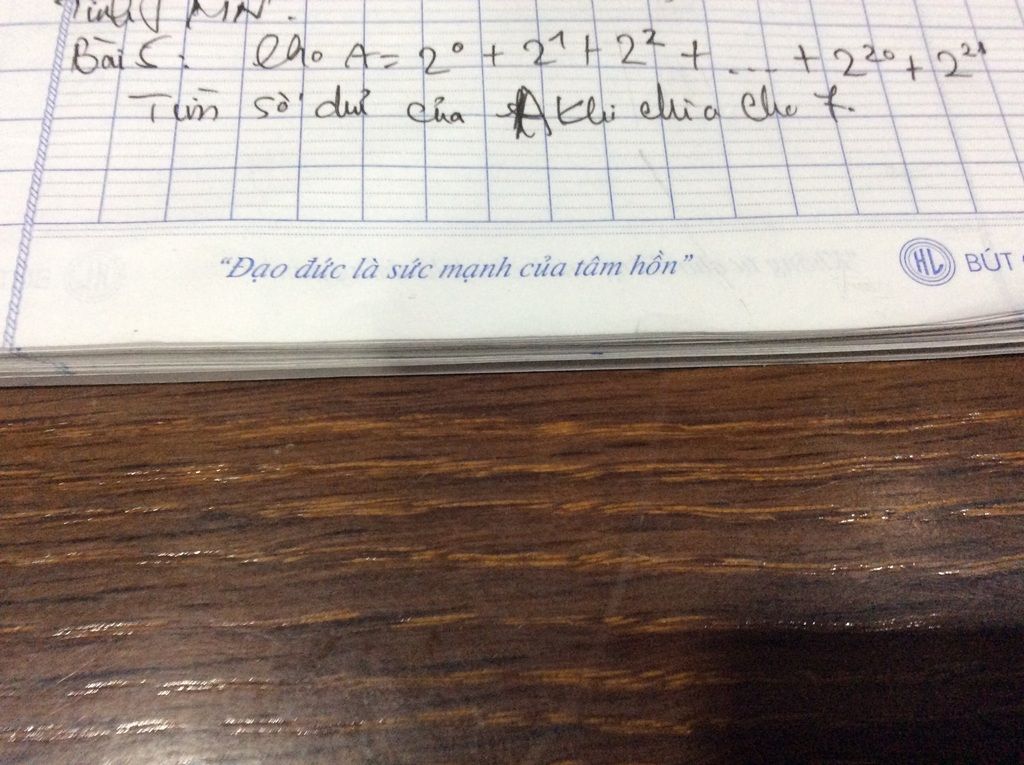 Tính MN.
Bài 5: Cho A = 2⁰ + 2¹ + 2² + ... + 2²⁰ + 2²¹
Tìm số dư của A khi chia cho 7.
“Đạo đức là sức mạnh của tâm hồn”
HL BÚT